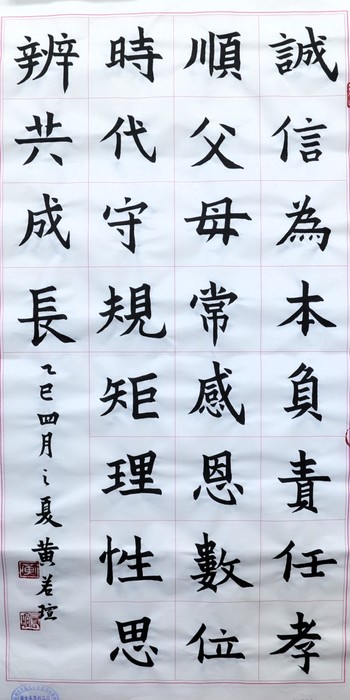 誠信為本負責任孝
順父母常感恩數位
時代守規矩理性思
辨共成長
乙巳四月之夏黃若瑄